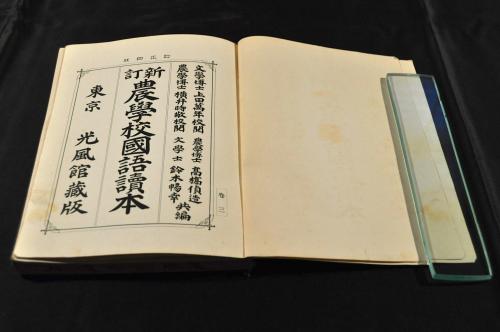 文學博士上田萬年校閲 農學博士 高橋偵造
農學博士橫井時敬校閲 文學士 鈴木暢幸
共編
卷三
新訂
農學校國語讀本
東京 光風館藏版